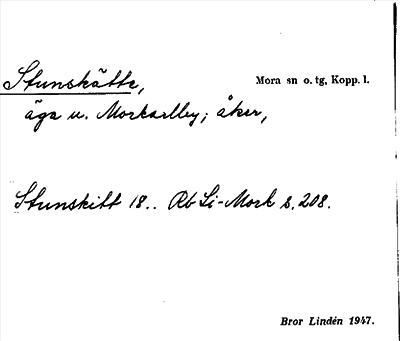 Stunskätte, Mora sn o. tg, Kopp. l.
äga u. Morkarlby; åker,
Stunskitt 18.. Rb Li-Mork s. 208.
Bror Lindén 1947.